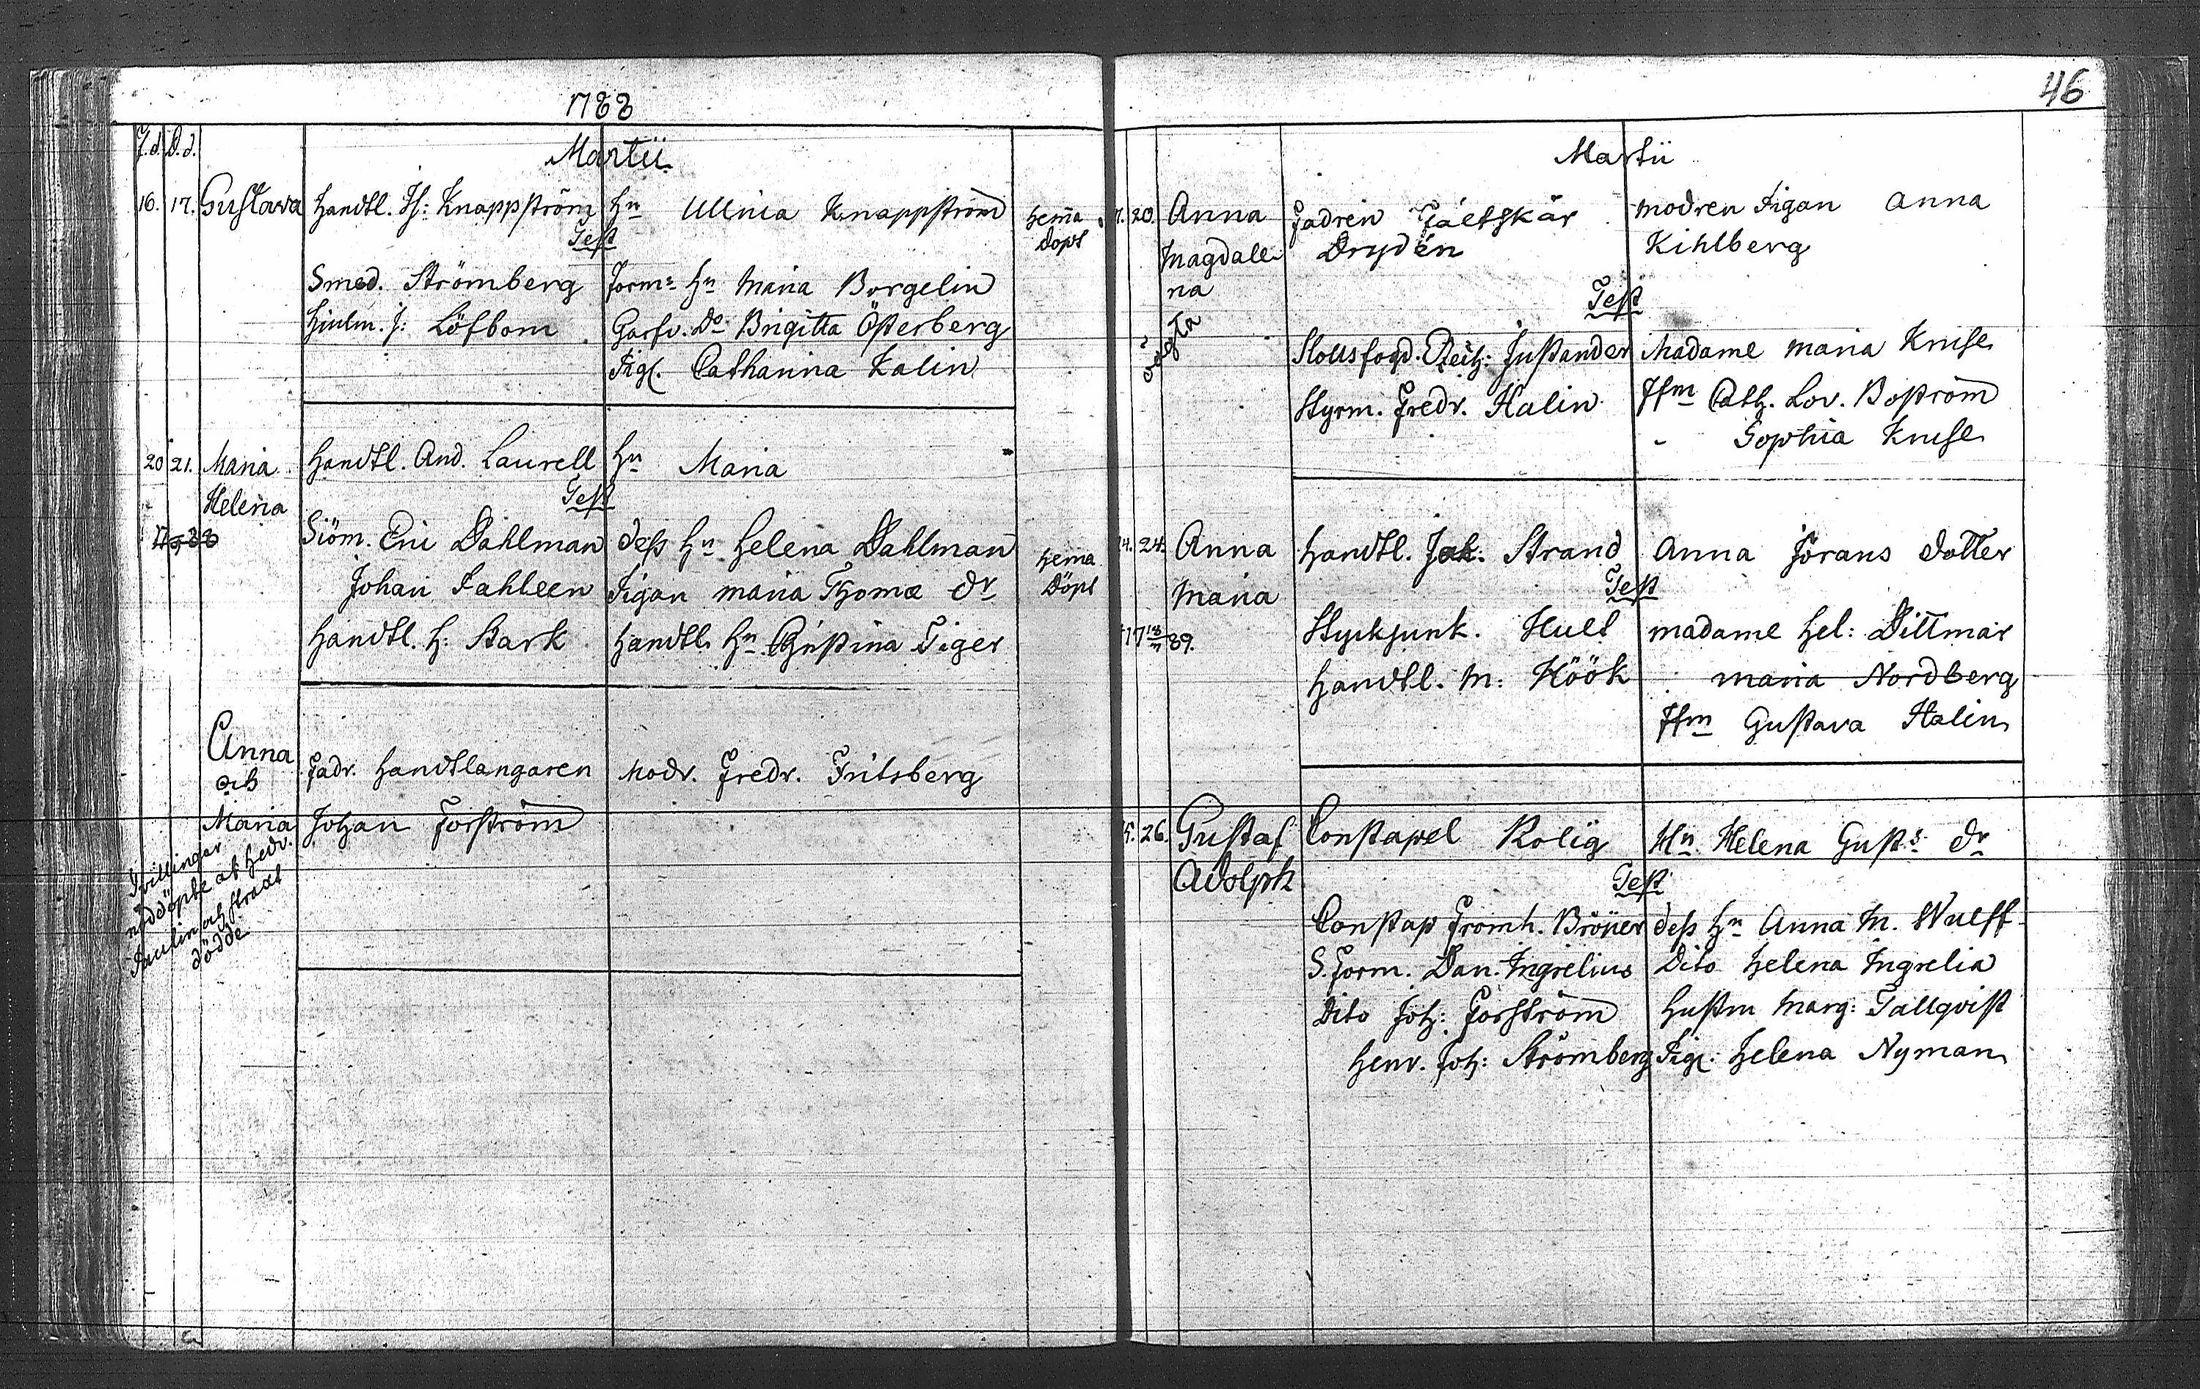 1788
46
f.d. D.d.
Martii
16. 17. Gustava Handtl. Is: Knappström Hn Ullrica Knappström
Test
Smed. Strömberg Forms Hn Maria Borgelin
Hiulm. J: Löfbom Garfv. Do Brigitta Österberg
Pigl. Catharina Kalin
20 21. Maria Helena
Handtl. And. Laurell Hn Maria
Test
Siöm. Eric Dahlman dess Hn Helena Dahlman
Johan Fahleen Pigan Maria Thomæ dr
Handtl. H: Stark Handtl. Hn Christina Tiger
Anna
och
Maria
Fadr. Handtlangaren Modr. Fredr. Fritsberg
Johan Forström
Tvillingar
nöddöpte af Hedv.
Paulin och straxt
dödde
Martii
hema
döpt
20. Anna
Magdale
na
oägta
Fadren Fältskär Modren Pigan Anna
Drydén Kihlberg
Test
Slottsfogd. Justander Madame Maria Kruse
Styrm. Fredr. Halin Jfm Cath. Lov. Boström
Sophia Kruse
hema
döpt
24. 24. Anna
Maria
Handtl. Jak. Strand Anna Jörans dotter
Test
Styckjunk. Hult Madame Hel: Dittmar
Handtl. M: Höök Maria Nordberg
Jfm Gustava Halin
26. Gustaf
Adolph
Constapel Rolig Hn Helena Gusts dr
Test
Constap Fromh. Bröijer dess Hn Anna M. Wulff
S. Form. Dan. Ingrelius Dito Helena Ingrelia
Dito Joh: Forström Hustru Marg: Tallqvist
Henr. Joh: Strömberg Pigl: Helena Nyman